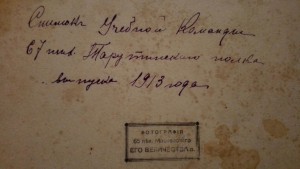 Снимокъ Учебной Команды
67 пех. Тарутинского полка
выпуска 1913 года.
ФОТОГРАФІЯ
ЕГО ВЕЛИЧЕСТВА